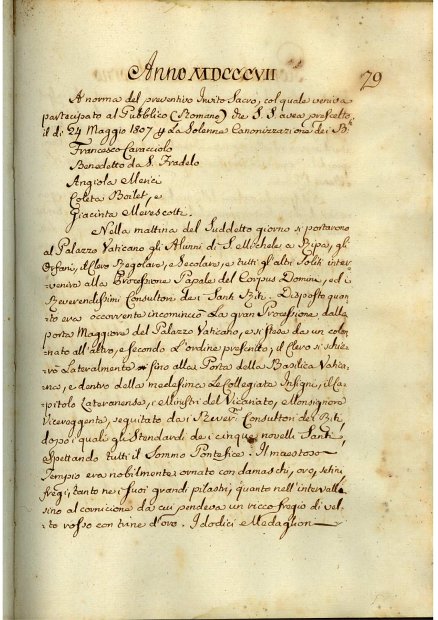 Anno MDCCCVII
79
A norma del preventivo Invito Sacro, col quale veniva
partecipato al Pubblico (Romano) che S. S. avea prescelto
il dì 24 Maggio 1807 p la Solenne Canonizzazione dei B.
Francesco Caracciolo
Benedetto da S. Fradelo
Angiola Merici
Coleta Boilet, e
Giacinta Merescotti.
Nella mattina del Suddetto giorno si portarono
al Palazzo Vaticano gli Alunni di S. Michele a Ripa, gli
Orfani, il Clero Regolare, e Secolare, e tutti gli altri soliti inter-
venire alla Processione Papale del Corpus Domini, ed i
Reverendissimi Consultori dei Santi Riti. Disposto quan-
to era occorrente incominciò la gran Processione dalla
porta Maggiore del Palazzo Vaticano, e si stese da un colon-
nato all'altro, e secondo l'ordine prescritto, il Clero si schie-
rò lateralmente sino alla Porta della Basilica Vatica-
na, e dentro della medesima le Collegiate Insigni, il Ca-
pitolo Lateranense, e Ministri del Vicariato, Monsignore
Viceregente, seguitato dai Rever. Consultori dei Riti,
dopo i quali gli Stendardi dei cinque novelli Santi,
aspettando tutti il Sommo Pontefice. Il maestoso
Tempio era nobilmente ornato con damaschi, oro, setini
fregj, tanto nei suoi grandi pilastri, quanto nell'intervallo
sino al cornicione da cui pendeva un ricco fregio di vel-
luto rosso con trine d'oro. I dodici Medaglion